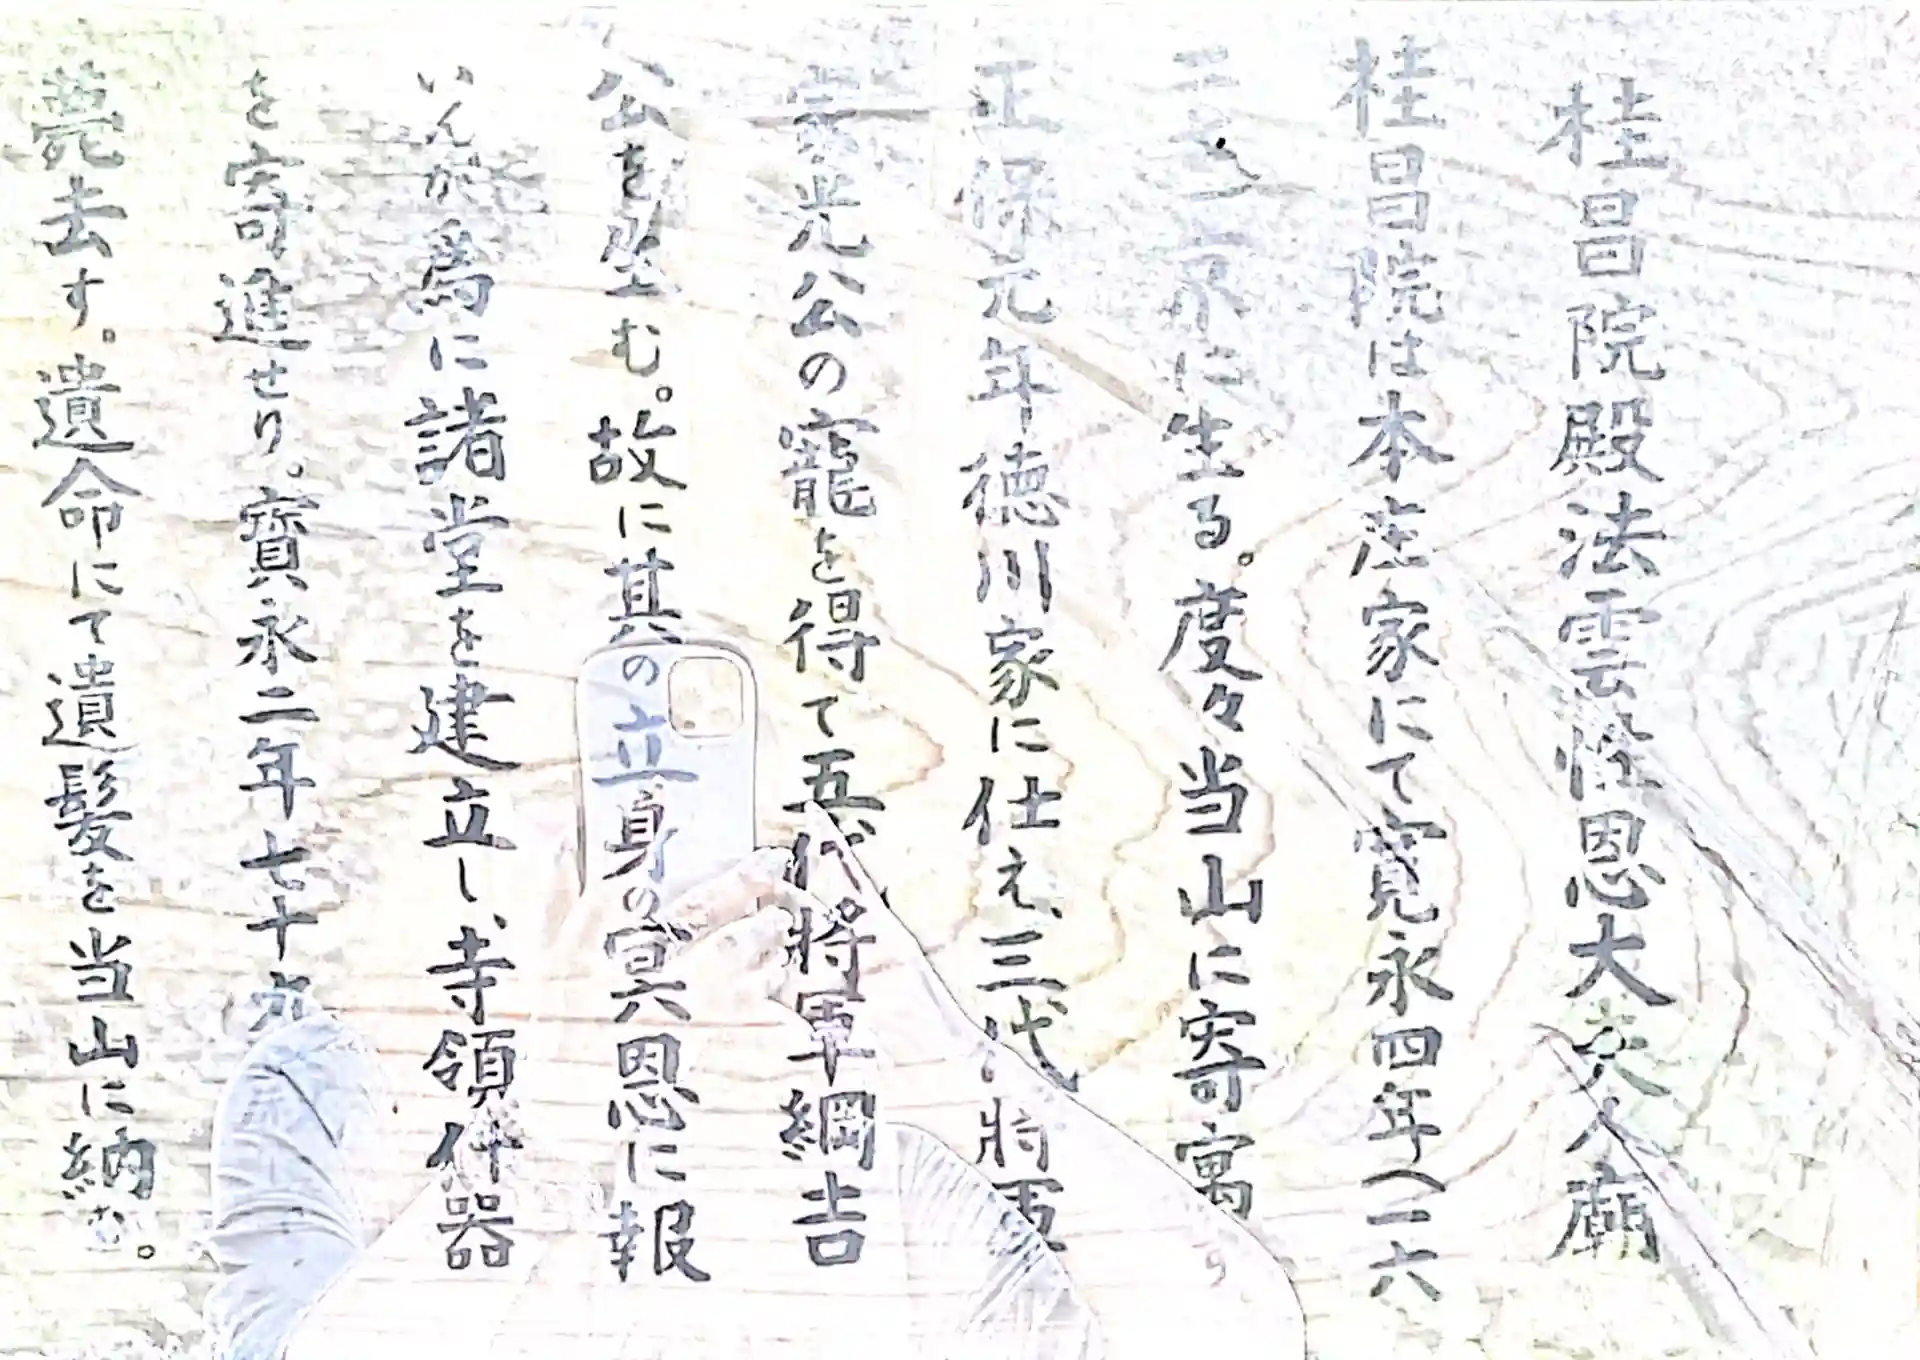 桂昌院殿法雲性恩大夫人廟
桂昌院は本庄家にて寛永四年(一六
二七)京に生る。度々当山に寄寓
正保元年徳川家に仕え、三代将軍
家光公の寵を得て五代將軍綱吉
公を生む。故に其の立身の冥恩に報
いんが爲に諸堂を建立し、寺領什器
を寄進せり。寶永二年七十九
薨去す。遺命にて遺髪を当山に納む。